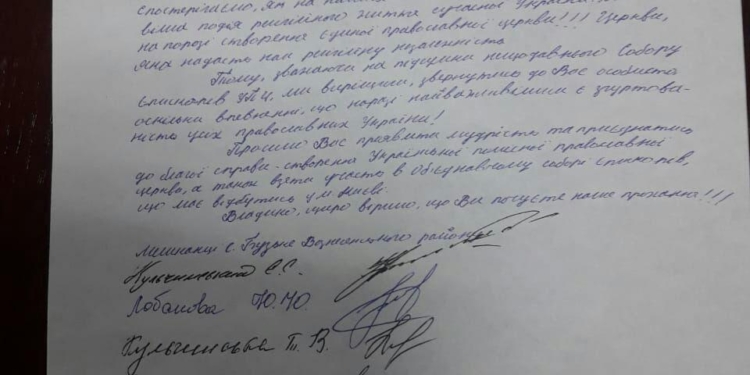 спостерігаємо, як на
подія релігійного життя сучасної України
на порозі створення Єдиної православної церкви!!! Церкви,
яка надасть нам релігійну незалежність
Тому, зважаючи на підсумки нещодавнього Собору
Єпископів УПЦ, ми вирішили, звернутись до Вас особисто
оскільки впевнені, що наразі найважливішим є згуртова-
ність усіх православних України!
Просимо Вас проявити мудрість та приєднатись
до благої справи - створення Української помісної православної
церкви, а також взяти участь в Об'єднавчому соборі єпископів,
що має відбутись у м. Києві.
Владико, щиро віримо, що Ви почуєте наше прохання!!!
Мешканці с. Бузьке Вознесенського району
Кульчинська С.С.
Лобанова Ю.Ю.
Кульчинська Т. В.